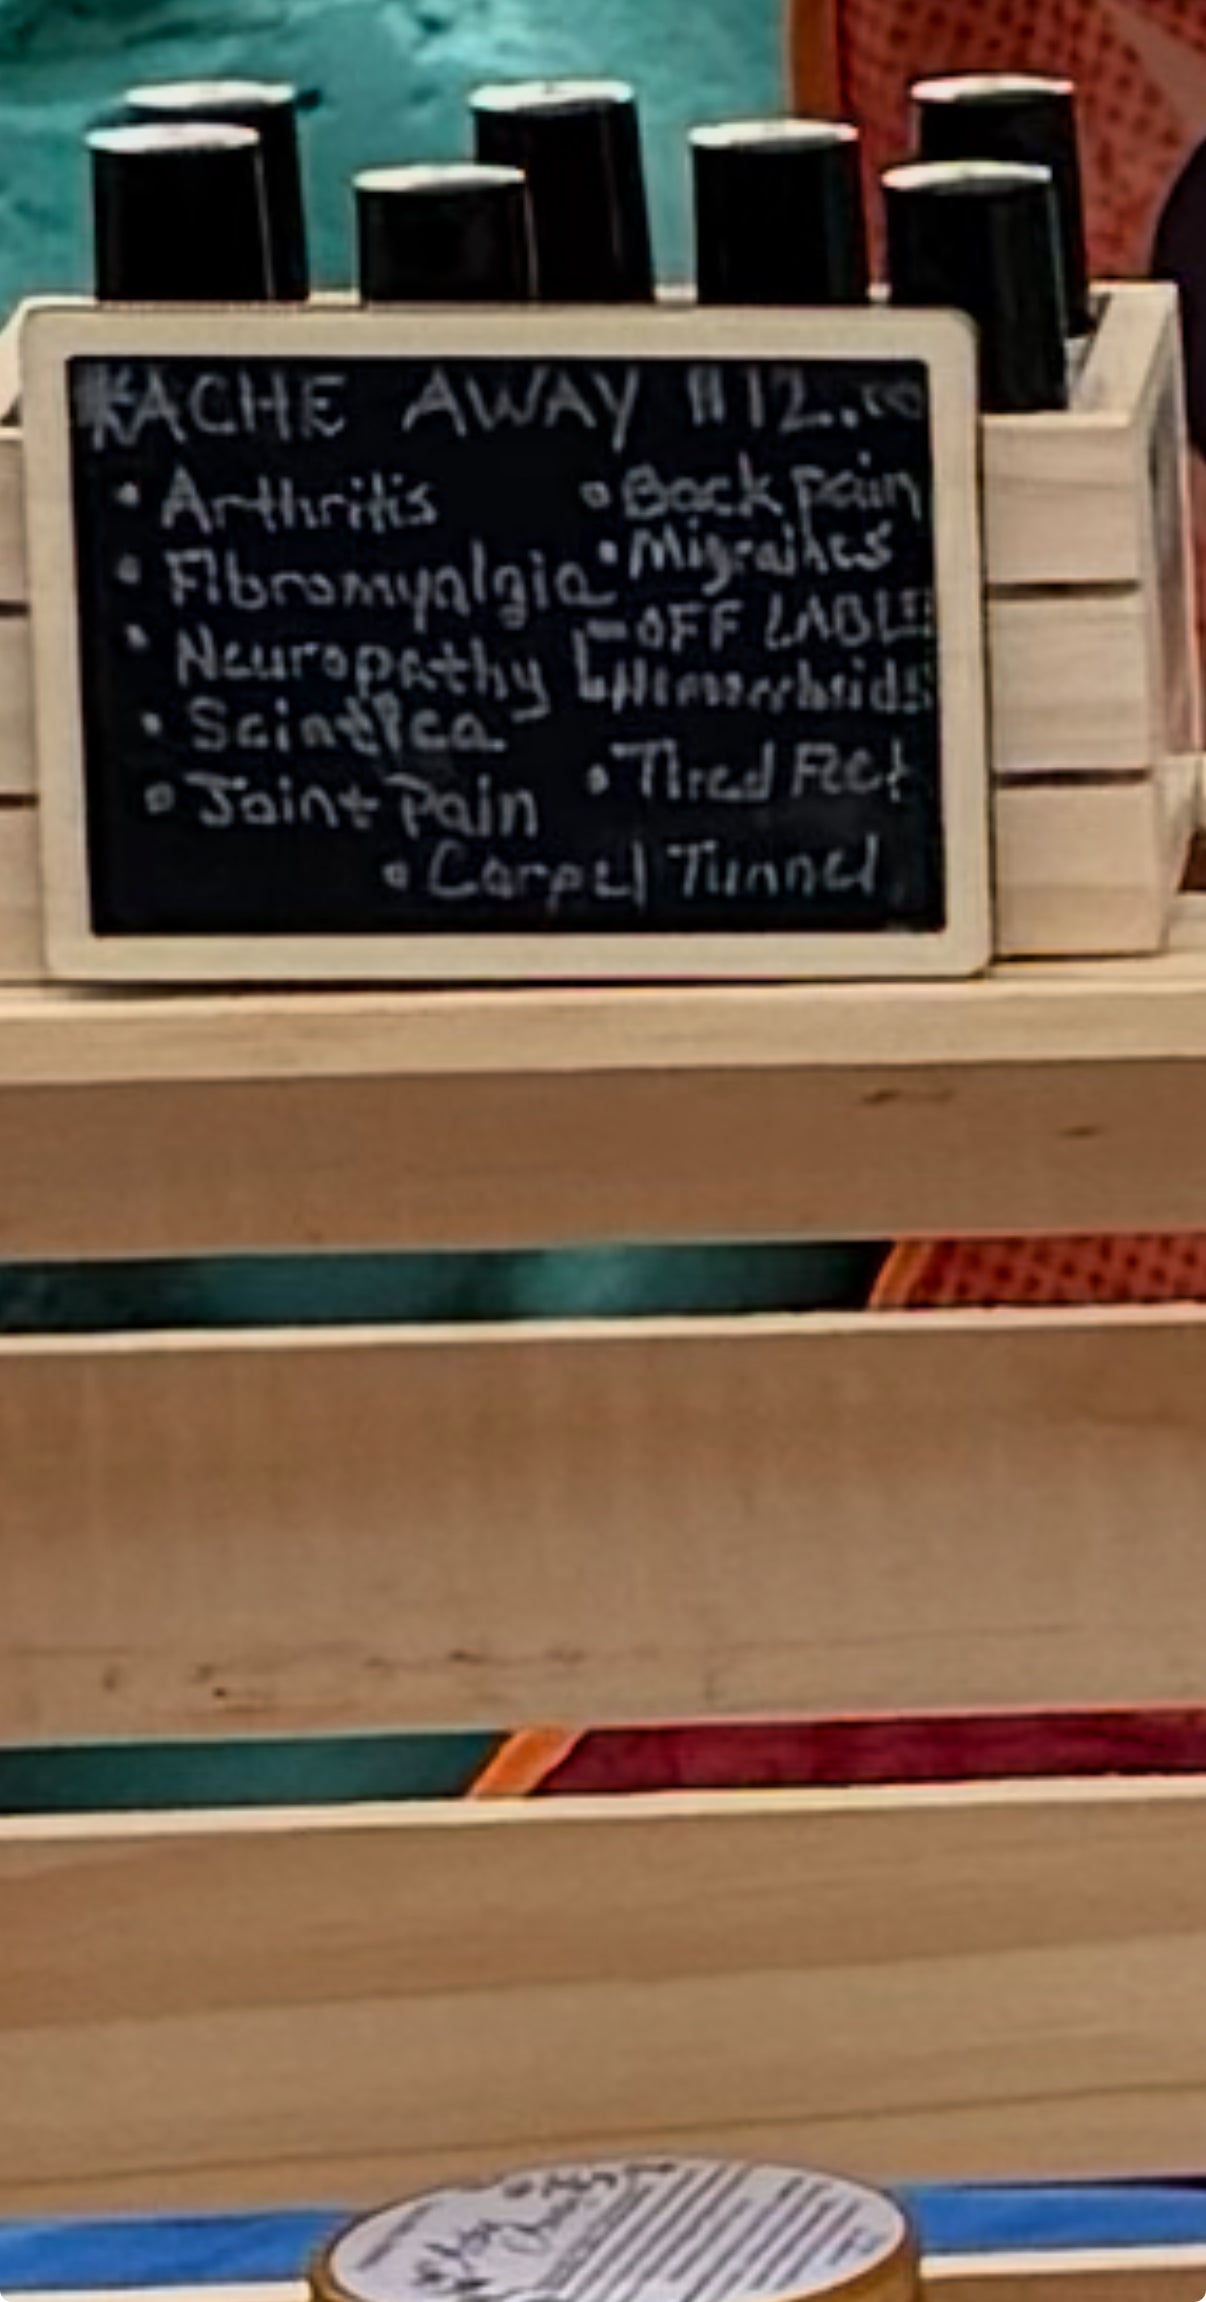 ACHE AWAY $12.00
• Arthritis
• Fibromyalgia
• Neuropathy
• Sciatica
• Joint Pain
• Back pain
• Migraines
- OFF LABLE
Hemorrhoids
• Tired Feet
• Carpel Tunnel